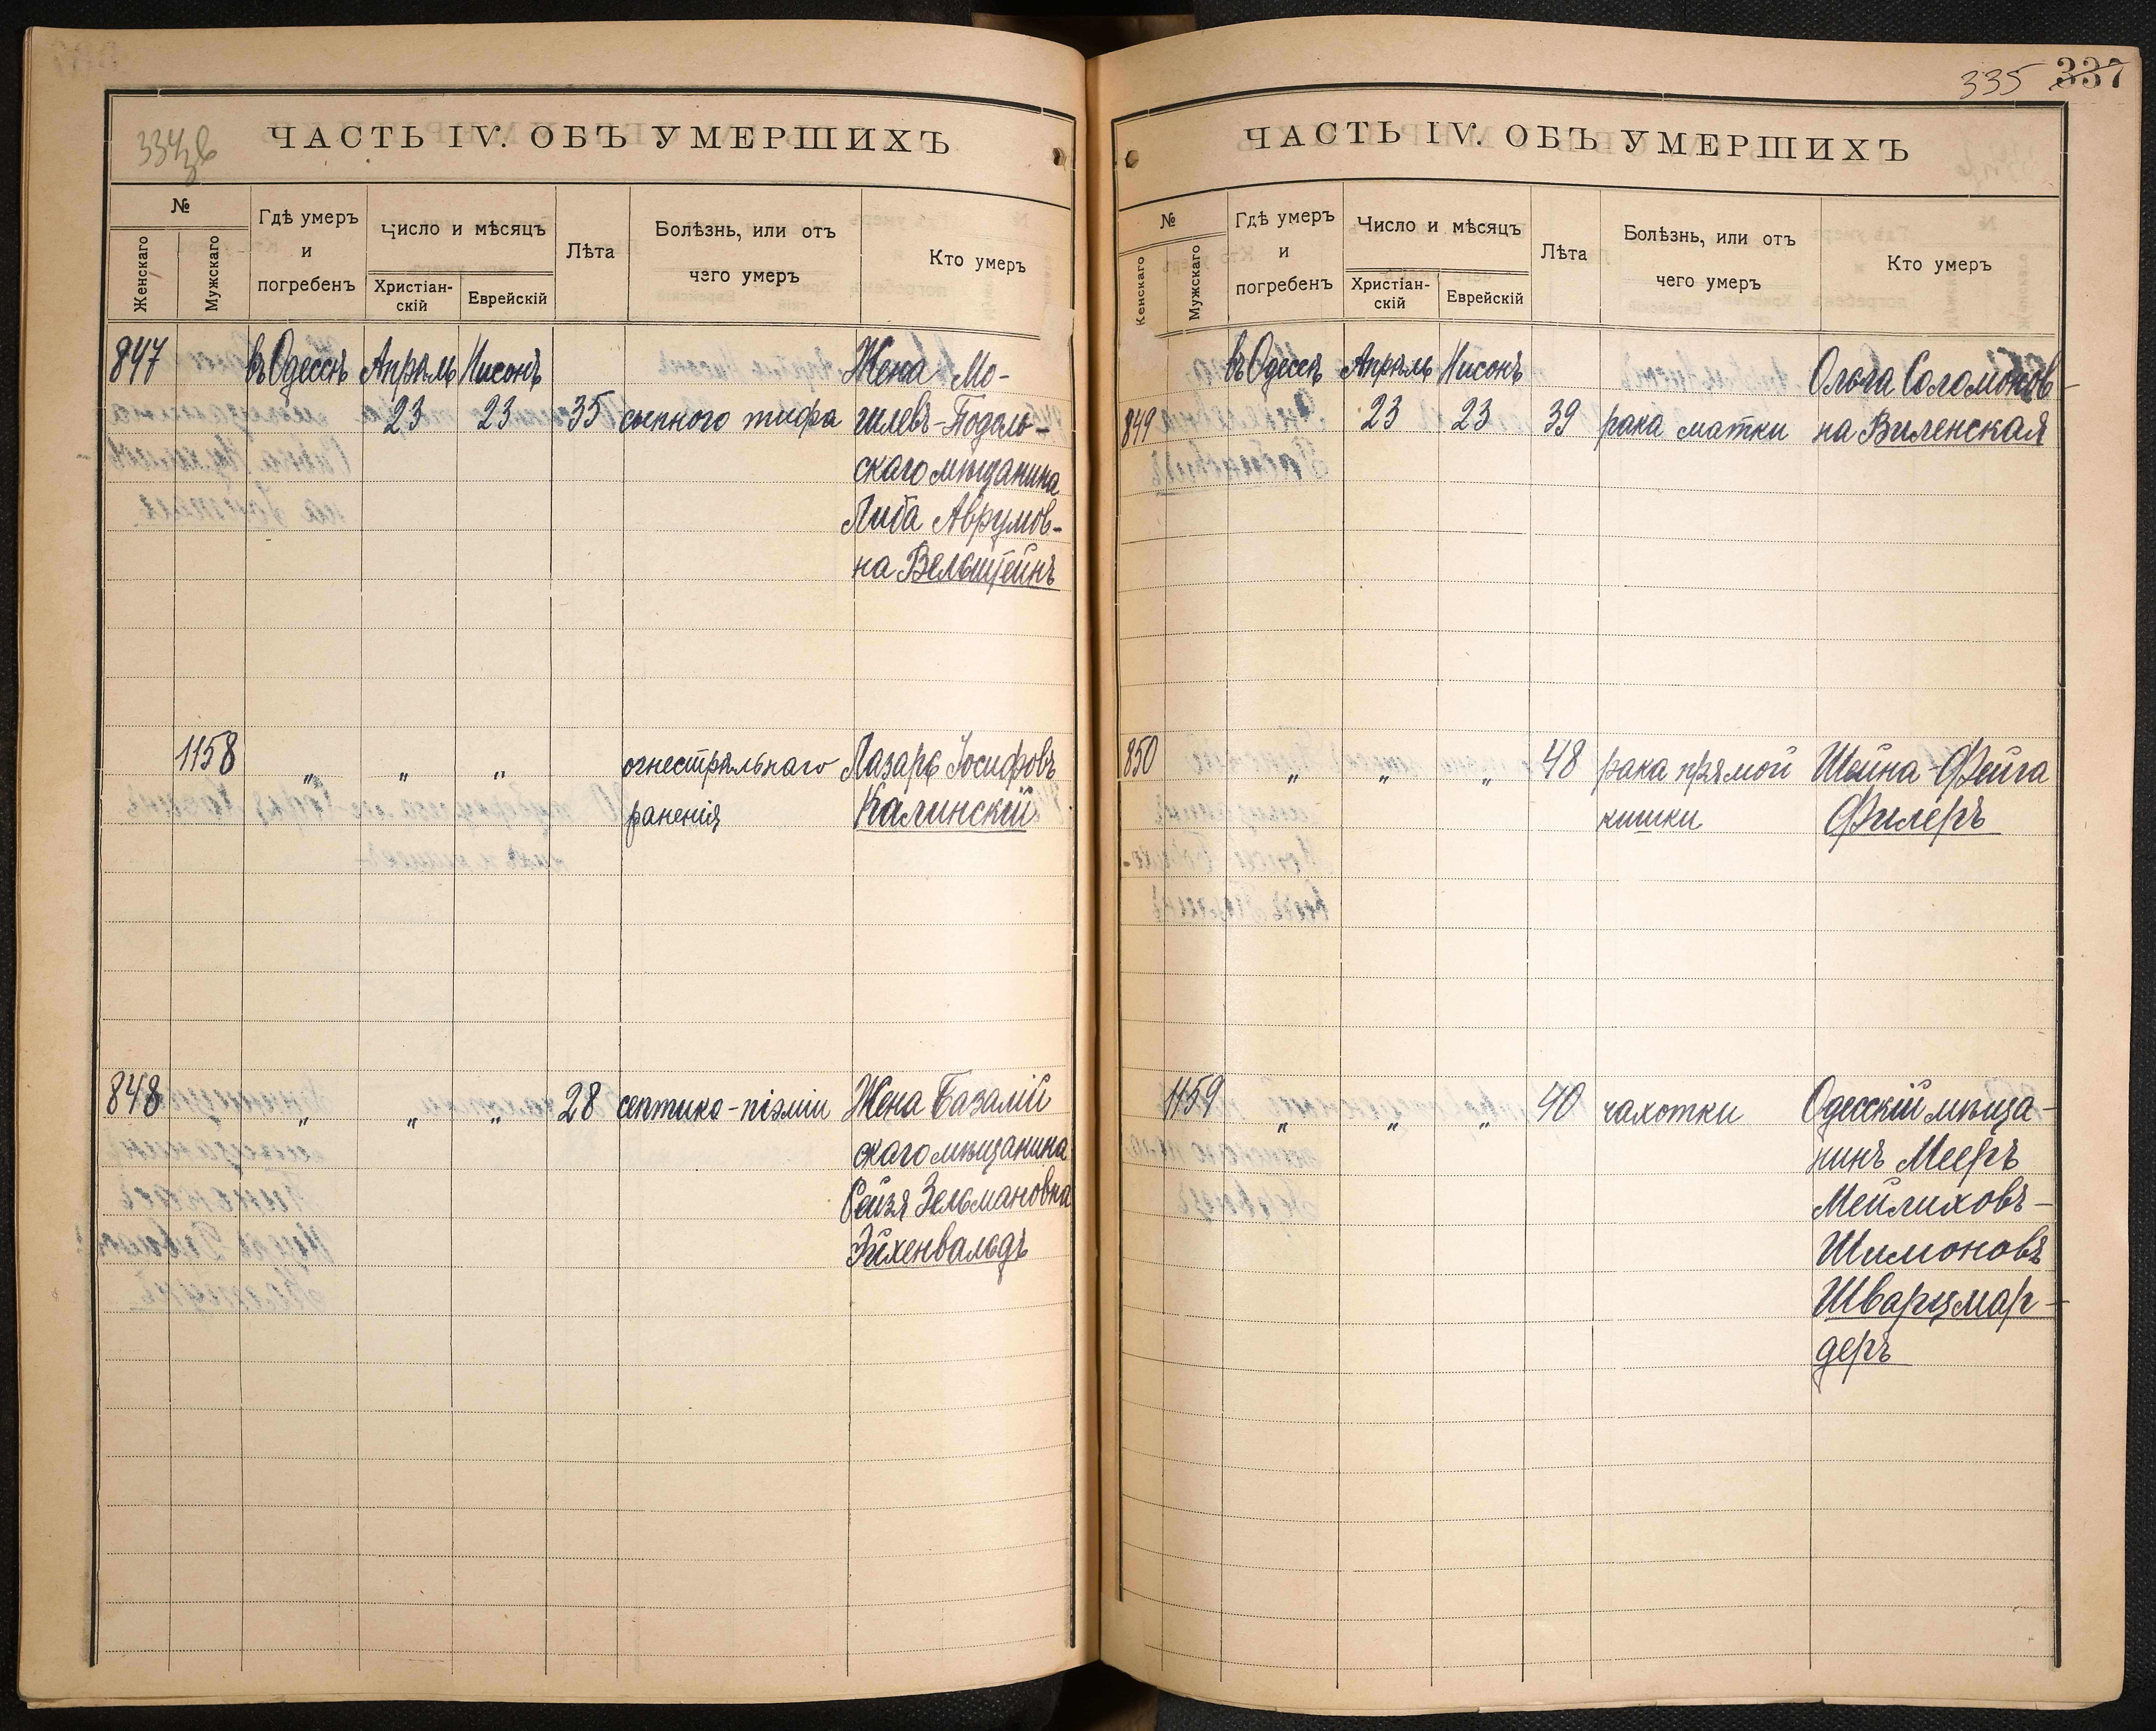 334об
ЧАСТЬ IV. ОБЪ УМЕРШИХЪ
№
Женскаго
Мужскаго
Гдѣ умеръ
и
погребенъ
Число и мѣсяцъ
Христіан-
скій
Еврейскій
Лѣта
Болѣзнь, или отъ
чего умеръ
Кто умеръ
847 въ Одессѣ Апрѣль Нисонъ Жена Мо-
23 23 35 сыпного тифа гилевъ-Подоль-
скаго мѣщанина
Либа Аврумов-
на Вельштейнъ
1158 " " " огнестрѣльнаго Лазарь Іосифовъ
раненія Калинскій
848 " " " 28 септико-піэміи Жена Базалій
скаго мѣщанина
Рейзя Зельмановна
Эйхенвальдъ
335 337
ЧАСТЬ IV. ОБЪ УМЕРШИХЪ
№
Женскаго
Мужскаго
Гдѣ умеръ
и
погребенъ
Число и мѣсяцъ
Христіан-
скій
Еврейскій
Лѣта
Болѣзнь, или отъ
чего умеръ
Кто умеръ
въ Одессѣ Апрѣль Нисонъ Ольга Соломонов-
849 23 23 39 рака матки на Виленская
850 " " " 48 рака прямой Шейна-Фейга
кишки Филеръ
1159 " " " 40 чахотки Одесскій мѣща-
нинъ Мееръ
Мейлиховъ-
Шимоновъ
Шварцмар-
деръ